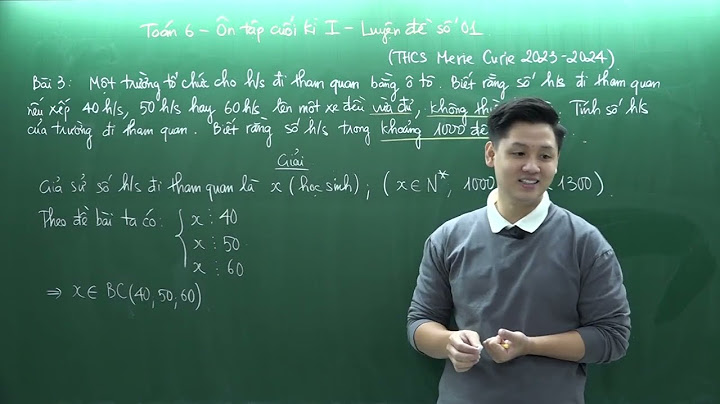 Toán 6 - Ôn tập cuối kì I - Luyện đề số 01
(THCS Marie Curie 2023-2024)
Bài 3: Một trường tổ chức cho h/s đi tham quan bằng ô tô. Biết rằng số h/s đi tham quan
nếu xếp 40 h/s, 50 h/s hay 60 h/s lên một xe đều vừa đủ, không Tính số h/s
của trường đi tham quan. Biết rằng số h/s trong khoảng 1000 đế
Giải
Giả sử số h/s đi tham quan là x (học sinh); (x ∈ N*, 1000 1300).
Theo đề bài ta có: x ⋮ 40
x ⋮ 50
x ⋮ 60
⇒ x ∈ BC(40,50,60)